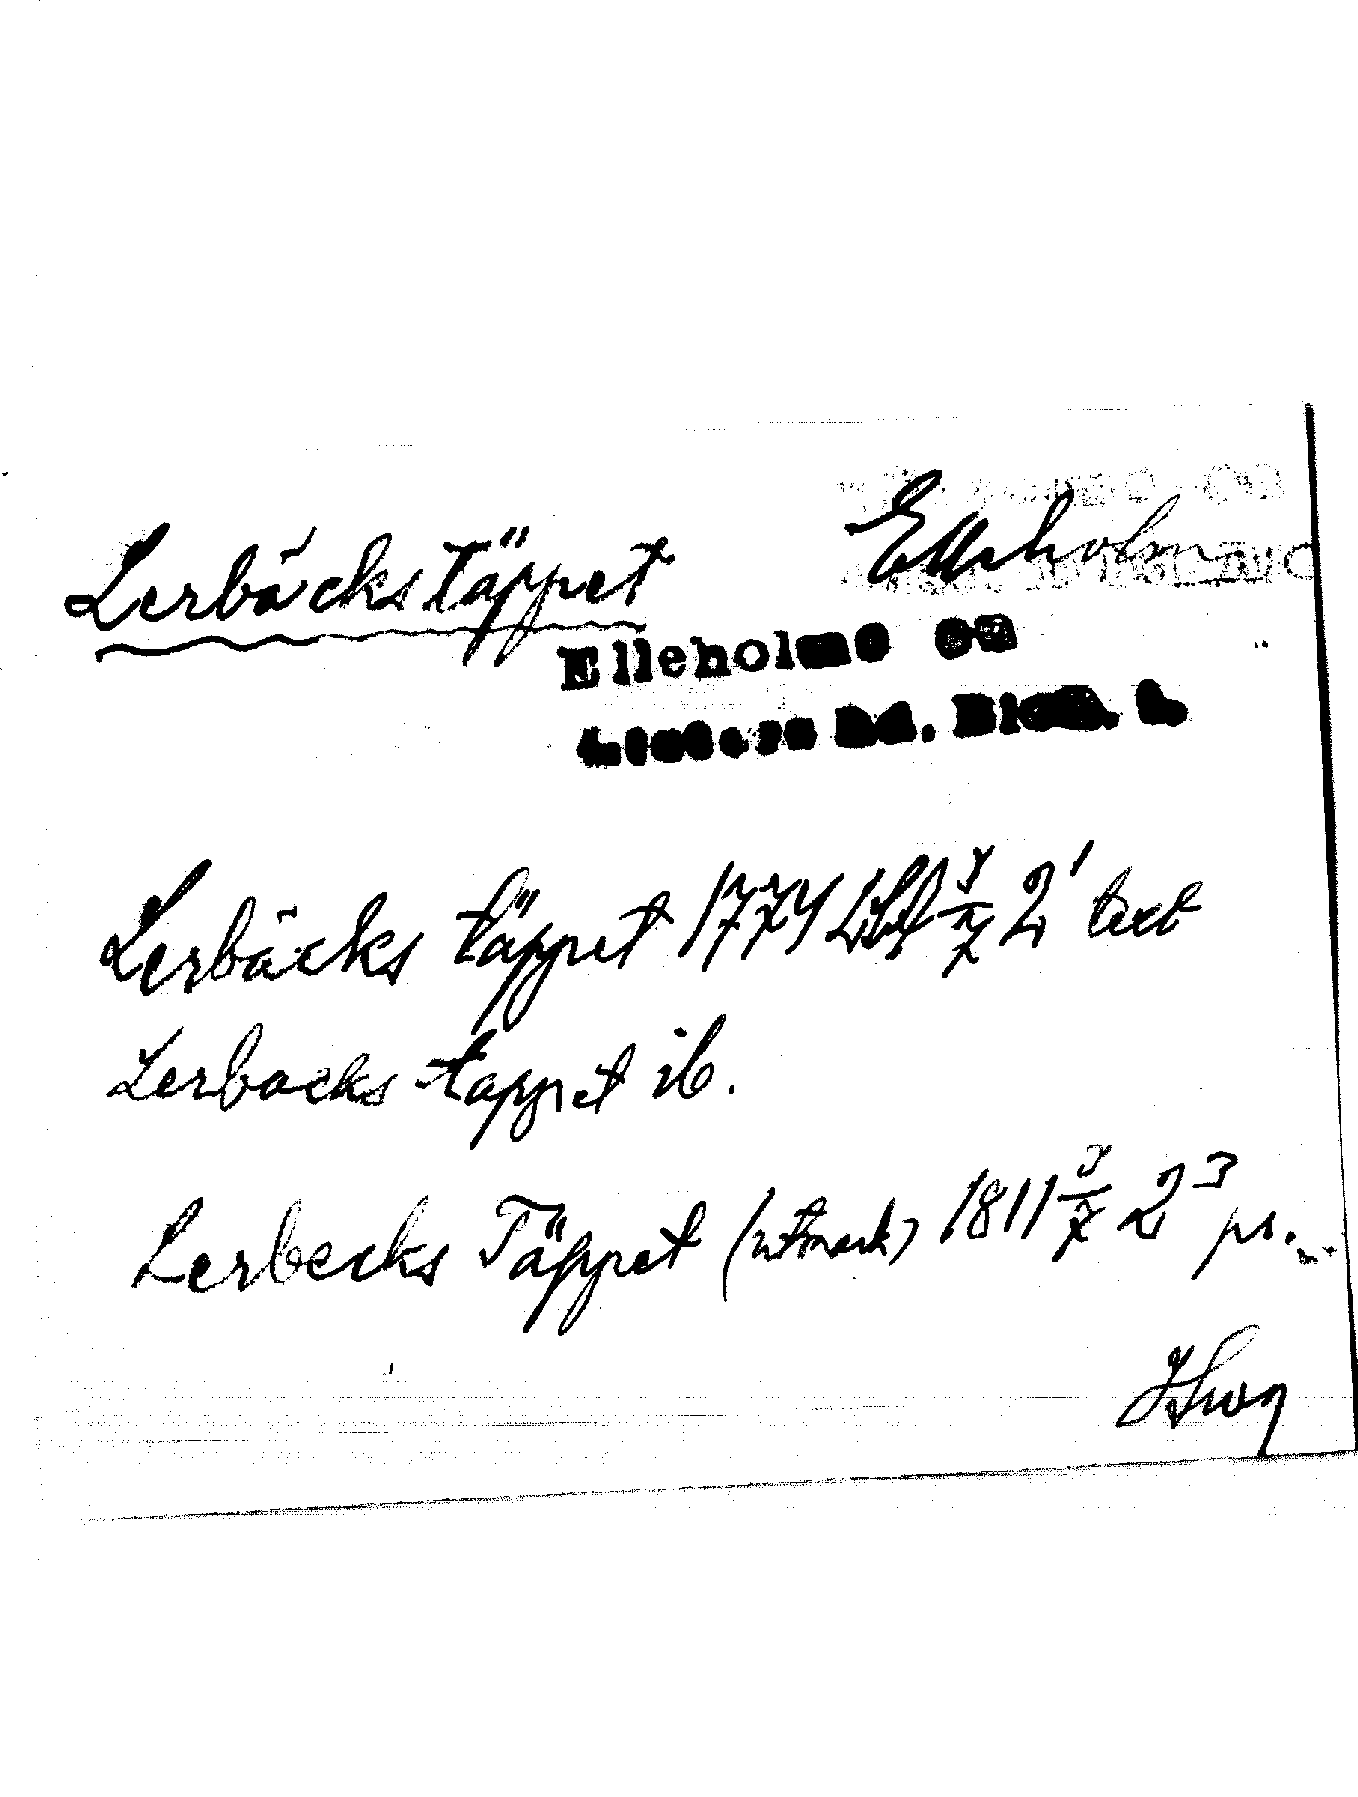 Lerbäckstäppet Elleholm
Elleholms sn
Listers hd. Blek. l.
Lerbäcks täppet 1774 2¹ text
Lerbacks tappet ib.
Lerbecks Täppet (utmark) 1811 2³ pr.